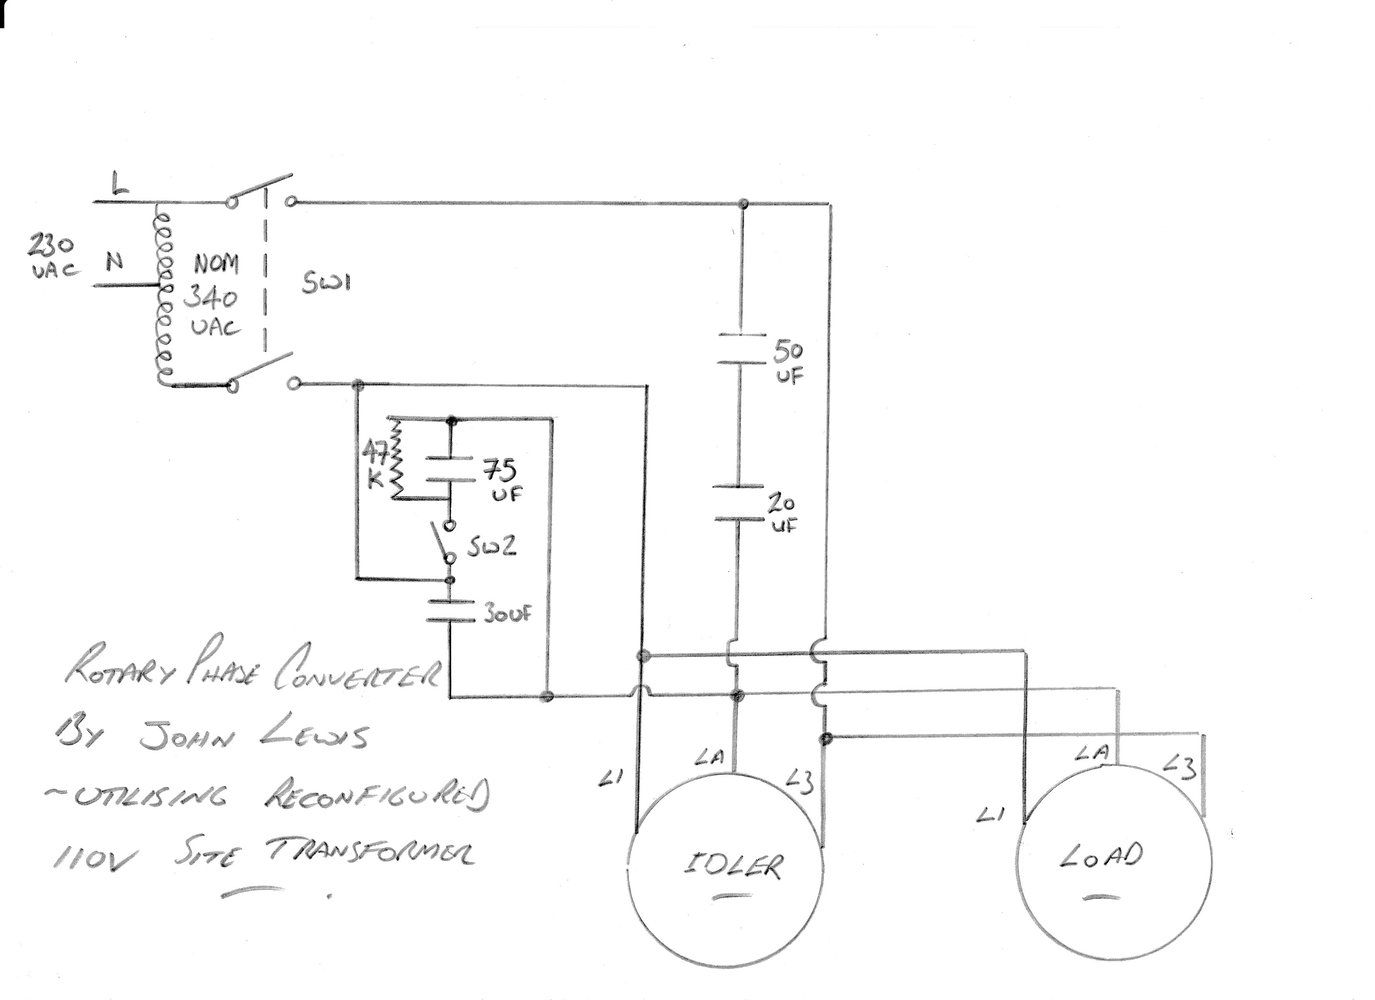 L
230
VAC
N
NOM
340
VAC
SW1
50
UF
47
K
75
UF
SW2
20
UF
30UF
ROTARY PHASE CONVERTER
BY JOHN LEWIS
~UTILISING RECONFIGURED
110V SITE TRANSFORMER
L1
LA
L3
IDLER
L1
LA
L3
LOAD